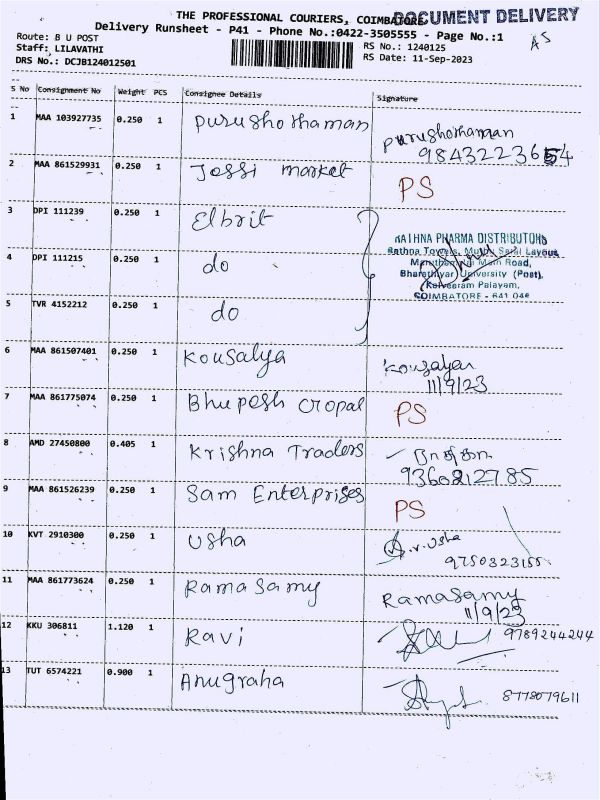 THE PROFESSIONAL COURIERS, COIMBATORE
DOCUMENT DELIVERY
Delivery Runsheet - P41 - Phone No.:0422-3505555 - Page No.:1
AS
Route: B U POST
Staff: LILAVATHI
DRS No.: DCJB124012501
RS No.: 1240125
RS Date: 11-Sep-2023
S No Consignment No Weight PCS Consignee Details Signature
1 MAA 103927735 0.250 1 Purushothaman Purushothaman
2 MAA 861529931 0.250 1 Jessi market PS
3 DPI 111239 0.250 1 Elbrit
RATHNA PHARMA DISTRIBUTORS
Rathna Towers, Muthu Salai Layout
Maruthamalai Main Road,
Bharathiyar University (Post),
Kalveeram Palayam,
COIMBATORE - 641 046
4 DPI 111215 0.250 1 do
5 TVR 4152212 0.250 1 do
6 MAA 861507401 0.250 1 Kousalya
11/9/23
7 MAA 861775074 0.250 1 Bhupesh Gopal PS
8 AMD 27450800 0.405 1 Krishna Traders
9360812785
9 MAA 861526239 0.250 1 Sam Enterprises PS
10 KVT 2910300 0.250 1 Usha R.V. Usha
9750323155
11 MAA 861773624 0.250 1 Ramasamy Ramasamy
11/9/23
12 KKU 306811 1.120 1 Ravi 9789244244
13 TUT 6574221 0.900 1 Anugraha 8778079611